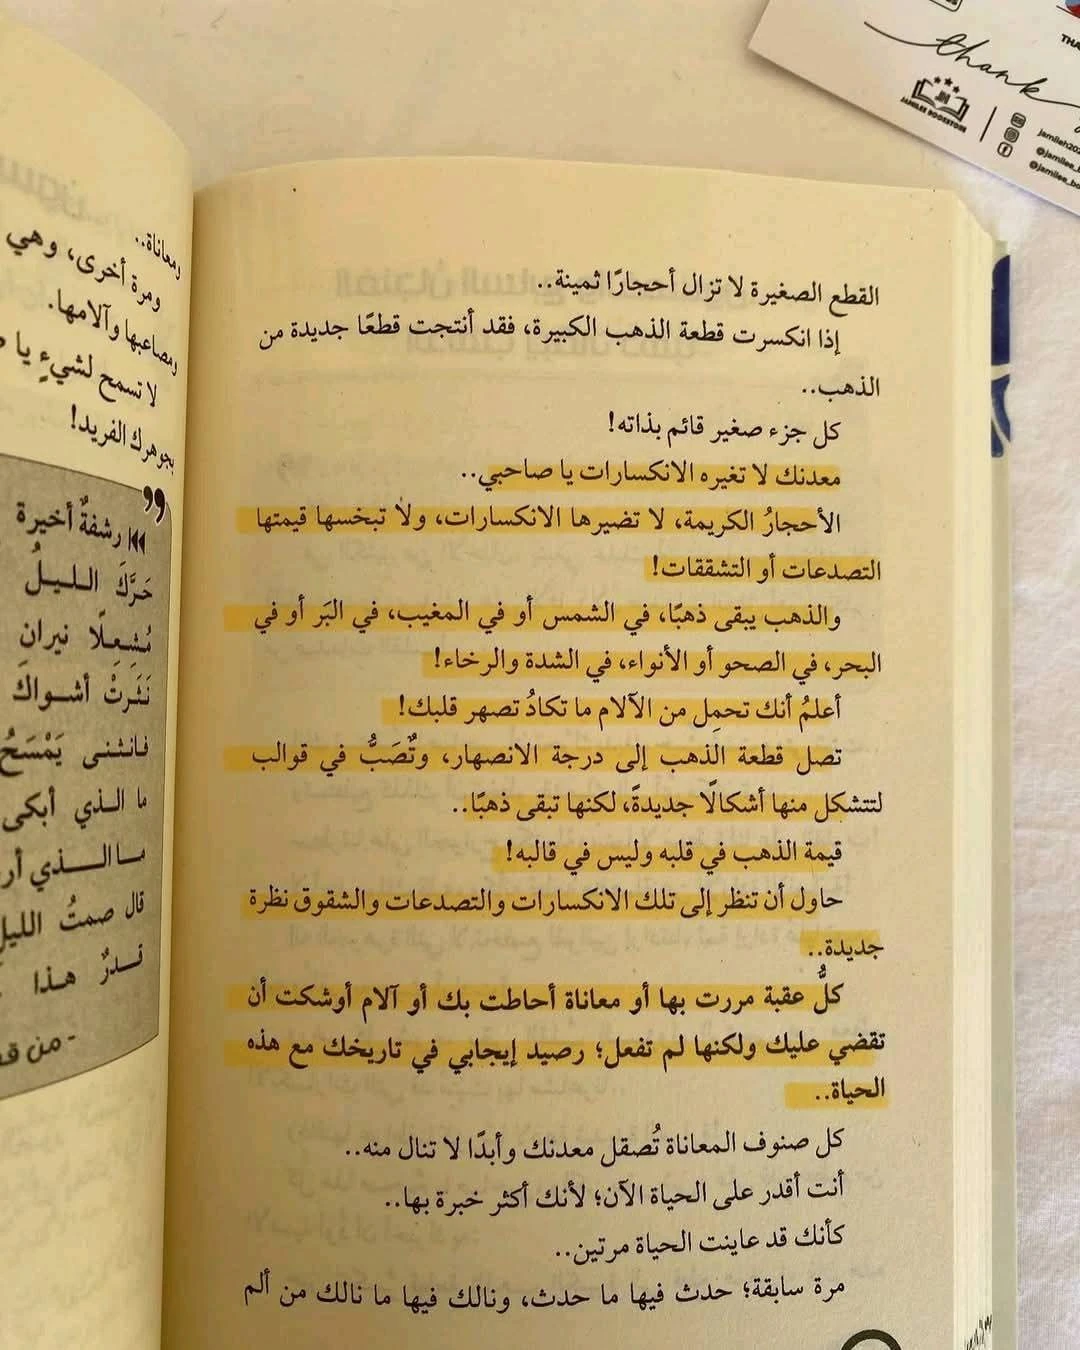 القطع الصغيرة لا تزال أحجارًا ثمينة..
إذا انكسرت قطعة الذهب الكبيرة، فقد أنتجت قطعًا جديدة من
الذهب..
كل جزء صغير قائم بذاته!
معدنك لا تغيره الانكسارات يا صاحبي..
الأحجارُ الكريمة، لا تضيرها الانكسارات، ولا تبخسها قيمتها
التصدعات أو التشققات!
والذهب يبقى ذهبًا، في الشمس أو في المغيب، في البَر أو في
البحر، في الصحو أو الأنواء، في الشدة والرخاء!
أعلمُ أنك تحمِل من الآلام ما تكادُ تصهر قلبك!
تصل قطعة الذهب إلى درجة الانصهار، وتٌصَبُّ في قوالب
لتتشكل منها أشكالًا جديدةً، لكنها تبقى ذهبًا..
قيمة الذهب في قلبه وليس في قالبه!
حاول أن تنظر إلى تلك الانكسارات والتصدعات والشقوق نظرة
جديدة..
كلُّ عقبة مررت بها أو معاناة أحاطت بك أو آلام أوشكت أن
تقضي عليك ولكنها لم تفعل؛ رصيد إيجابي في تاريخك مع هذه
الحياة..
كل صنوف المعاناة تُصقل معدنك وأبدًا لا تنال منه..
أنت أقدر على الحياة الآن؛ لأنك أكثر خبرة بها..
كأنك قد عاينت الحياة مرتين..
مرة سابقة؛ حدث فيها ما حدث، ونالك فيها ما نالك من ألم
ومعاناة..
ومرة أخرى، وهي
ومصاعبها وآلامها.
لا تسمح لشيءٍ يا
بجوهرك الفريد!
رشفةٌ أخيرة
حَرَّكَ الليلُ
مُشعِلًا نيرانِ
نَثَرتْ أشواكَ
فانثنى يَمْسَحُ
ما الذي أبكى
ما الذي
قال صمتُ الليل
قدرٌ هذا
- من
thank
JAMILEE BOOKSTORE